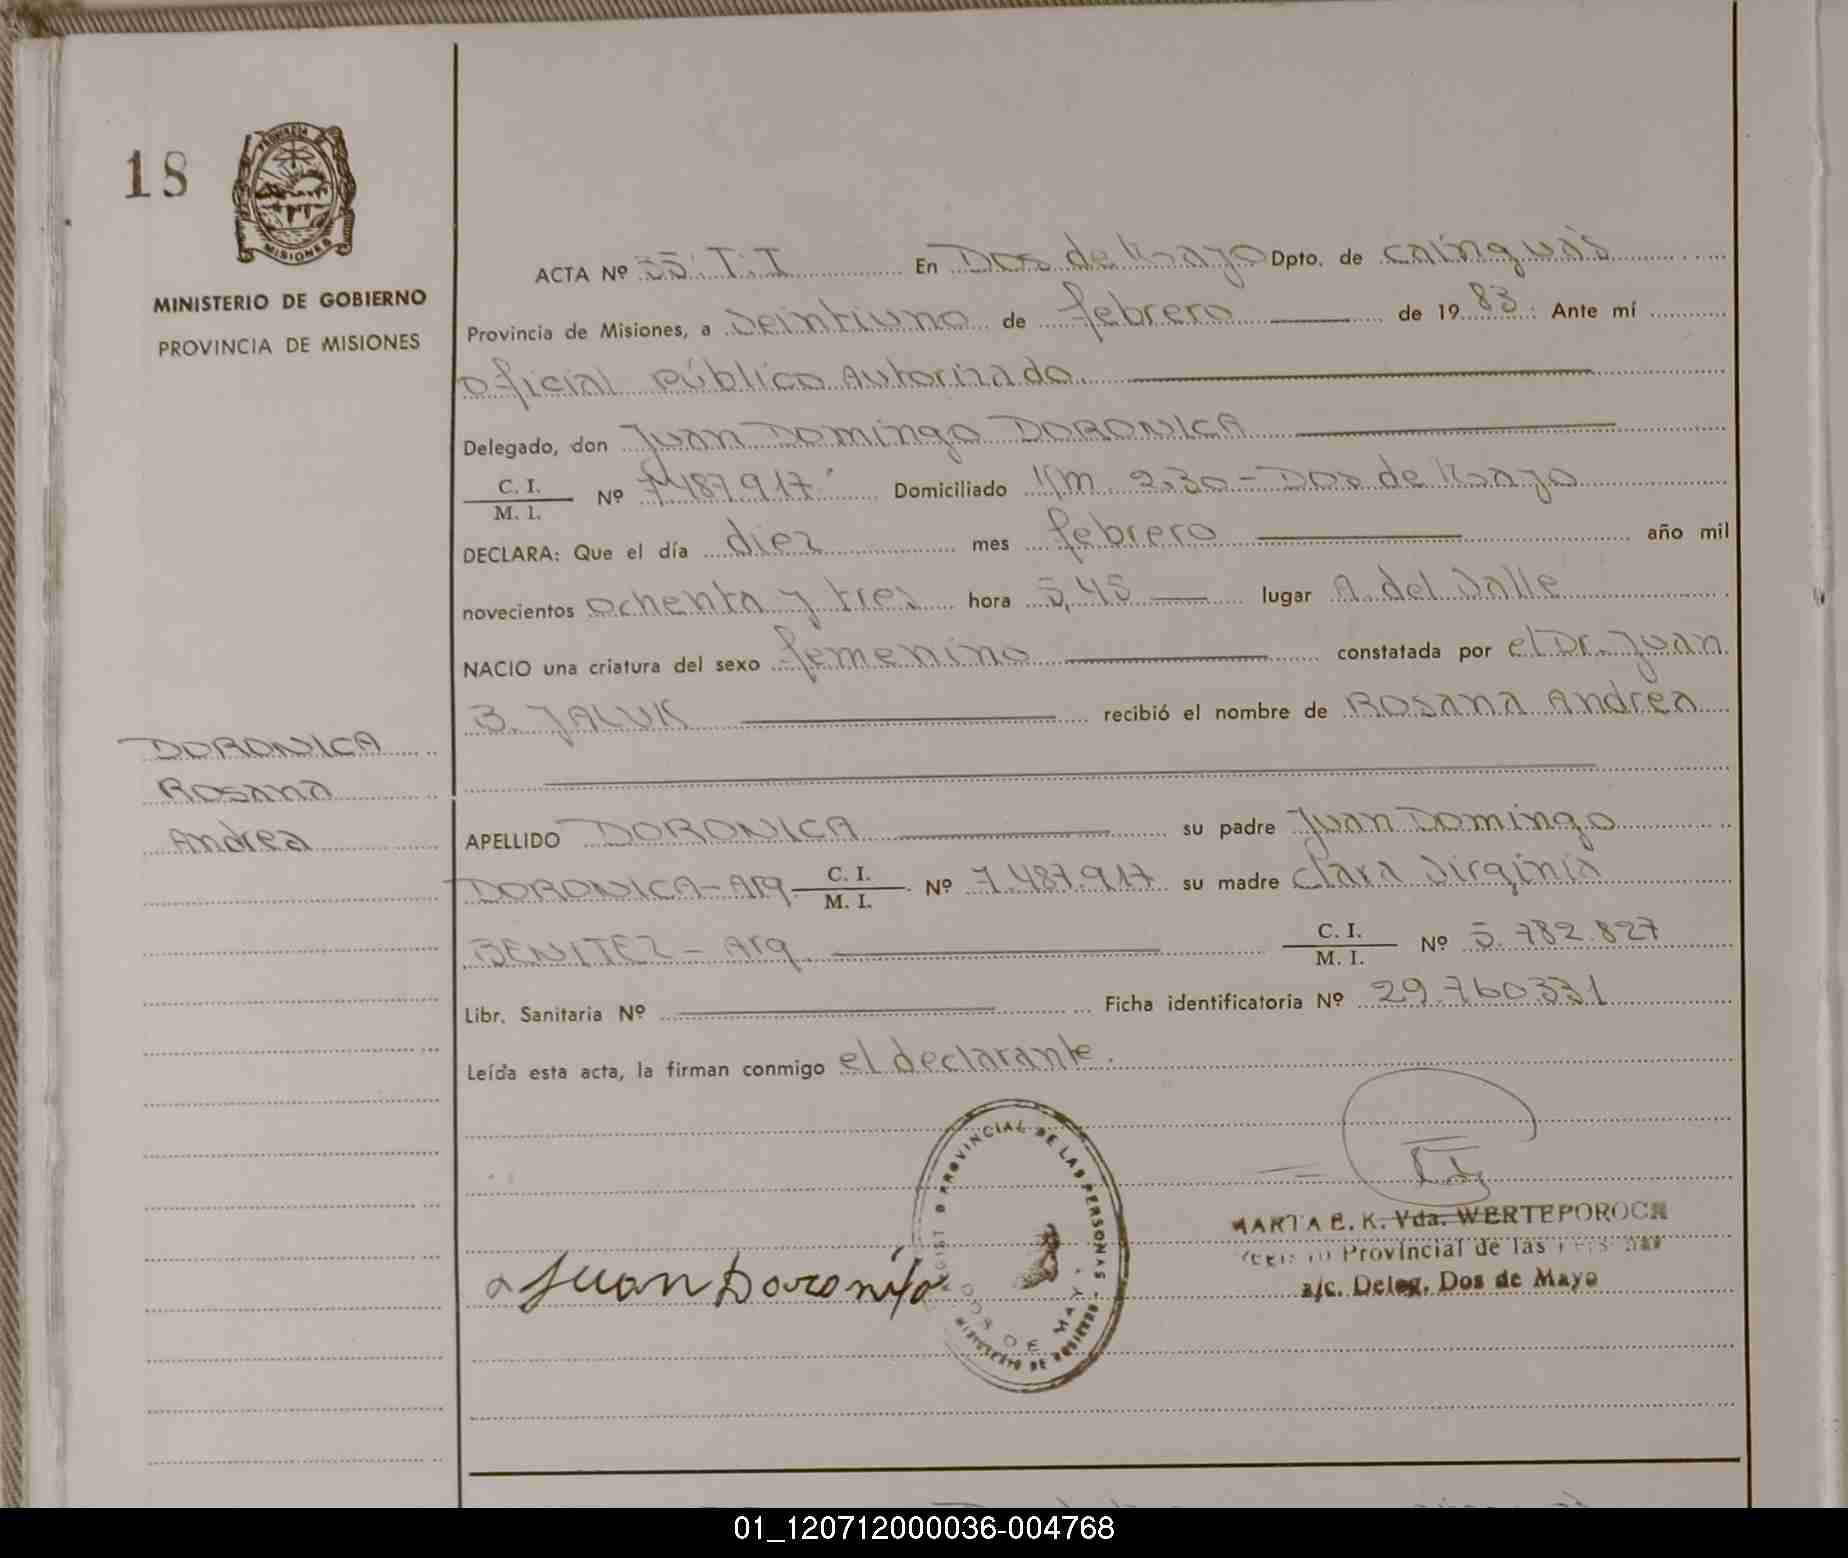 18
PROVINCIA
MISIONES
MINISTERIO DE GOBIERNO
PROVINCIA DE MISIONES
ACTA Nº 35. T. I En Dos de Mayo Dpto. de cainguás
Provincia de Misiones, a veintiuno de febrero de 1983. Ante mí
oficial público Autorizado
Delegado, don Juan Domingo DORONICA
C. I.
M. I. Nº 7.487.917 Domiciliado Km 230 - Dos de Mayo
DECLARA: Que el día diez mes febrero año mil
novecientos ochenta y tres hora 5,45 lugar A. del Valle
NACIO una criatura del sexo femenino constatada por el Dr. Juan
B. JALUK recibió el nombre de Rosana Andrea
DORONICA
Rosana
Andrea
APELLIDO DORONICA su padre Juan Domingo
DORONICA - Arg C. I.
M. I. Nº 7.487.917 su madre Clara Virginia
BENITEZ - Arg. C. I.
M. I. Nº 5.782.827
Libr. Sanitaria Nº Ficha identificatoria Nº 29.760331
Leída esta acta, la firman conmigo el declarante.
PROVINCIAL DE LAS PERSONAS
DOS DE MAYO
MINISTERIO DE GOBIERNO
Juan Doronica
MARTA E. K. Vda. WERTEPOROCH
Provincial de las
a/c. Deleg. Dos de Mayo
01_120712000036-004768